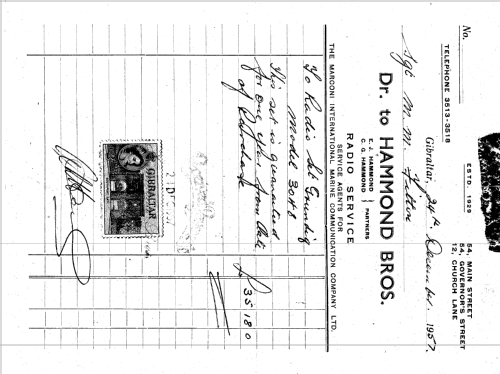 No.
ESTD. 1929
54, MAIN STREET
54, GOVERNOR'S STREET
12, CHURCH LANE
TELEPHONE 3513-3518
Gibraltar, 24th December 1957.
Sgt M. M.
Dr. to HAMMOND BROS.
E. J. HAMMOND
C. G. HAMMOND
PARTNERS
RADIO SERVICE
SERVICE AGENTS FOR
THE MARCONI INTERNATIONAL MARINE COMMUNICATION COMPANY LTD.
To Radio Set Grundig
Model 3048
£ 35 18 0
This set is guaranteed
for one year from date
of purchase
GIBRALTAR